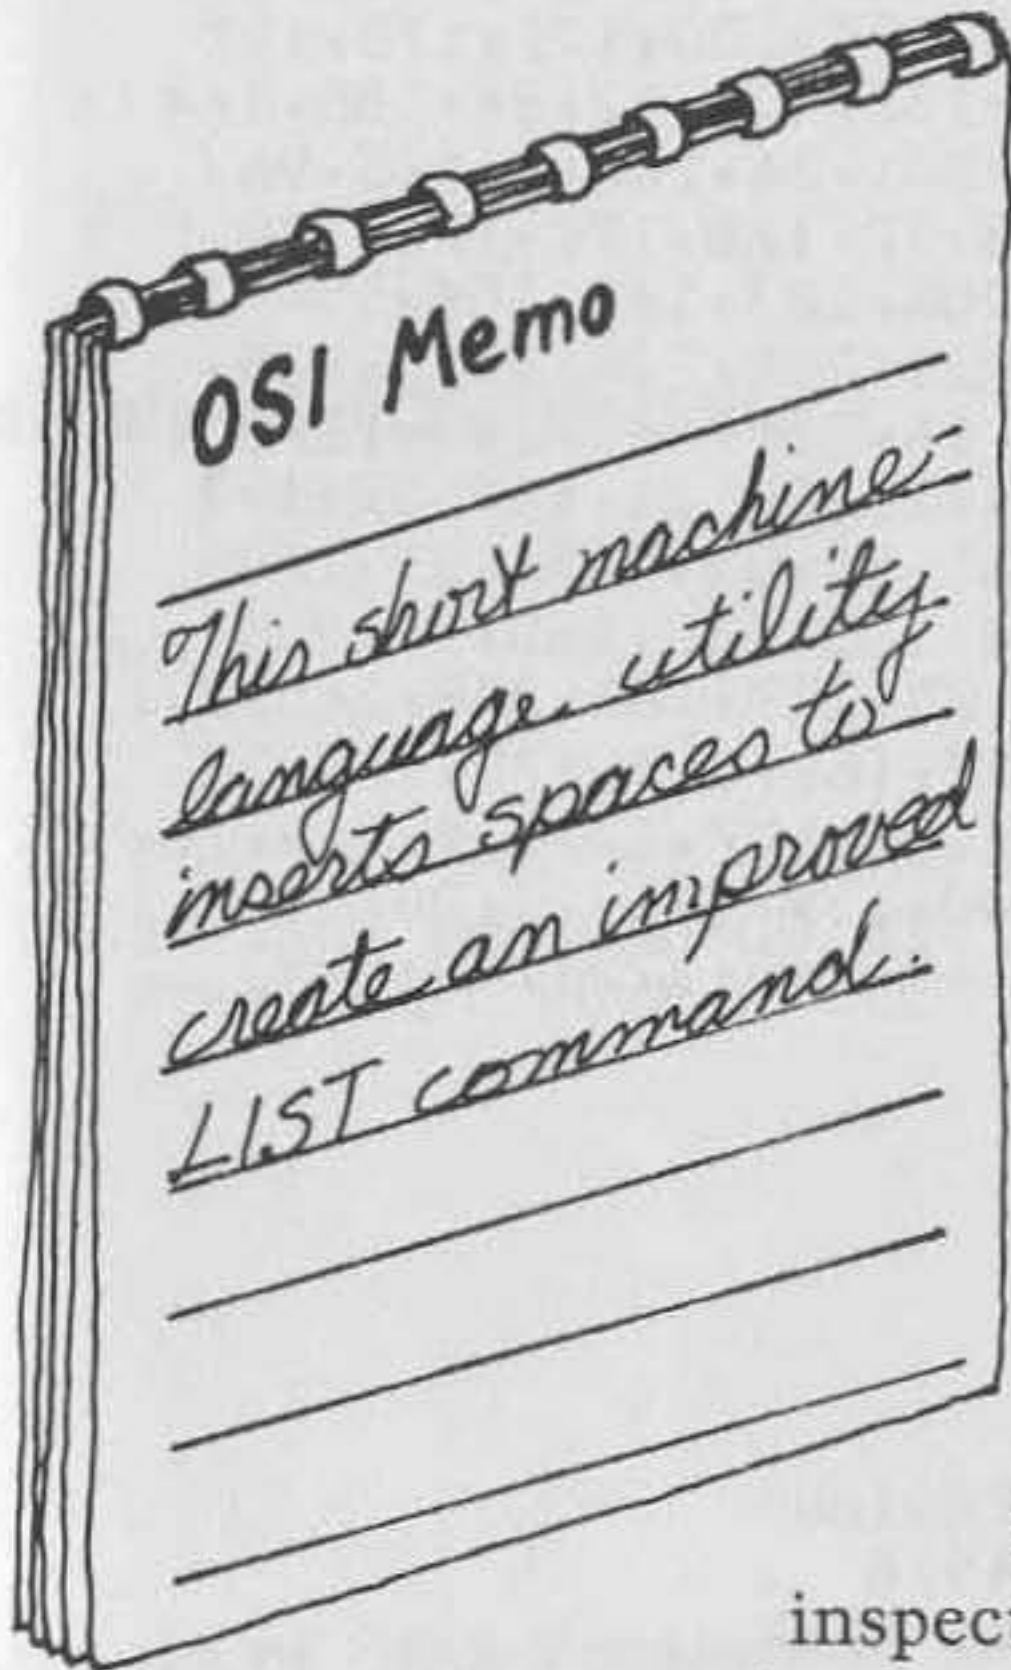 OSI Memo
This short machine-
language utility
inserts spaces to
create an improved
LIST command.
inspect